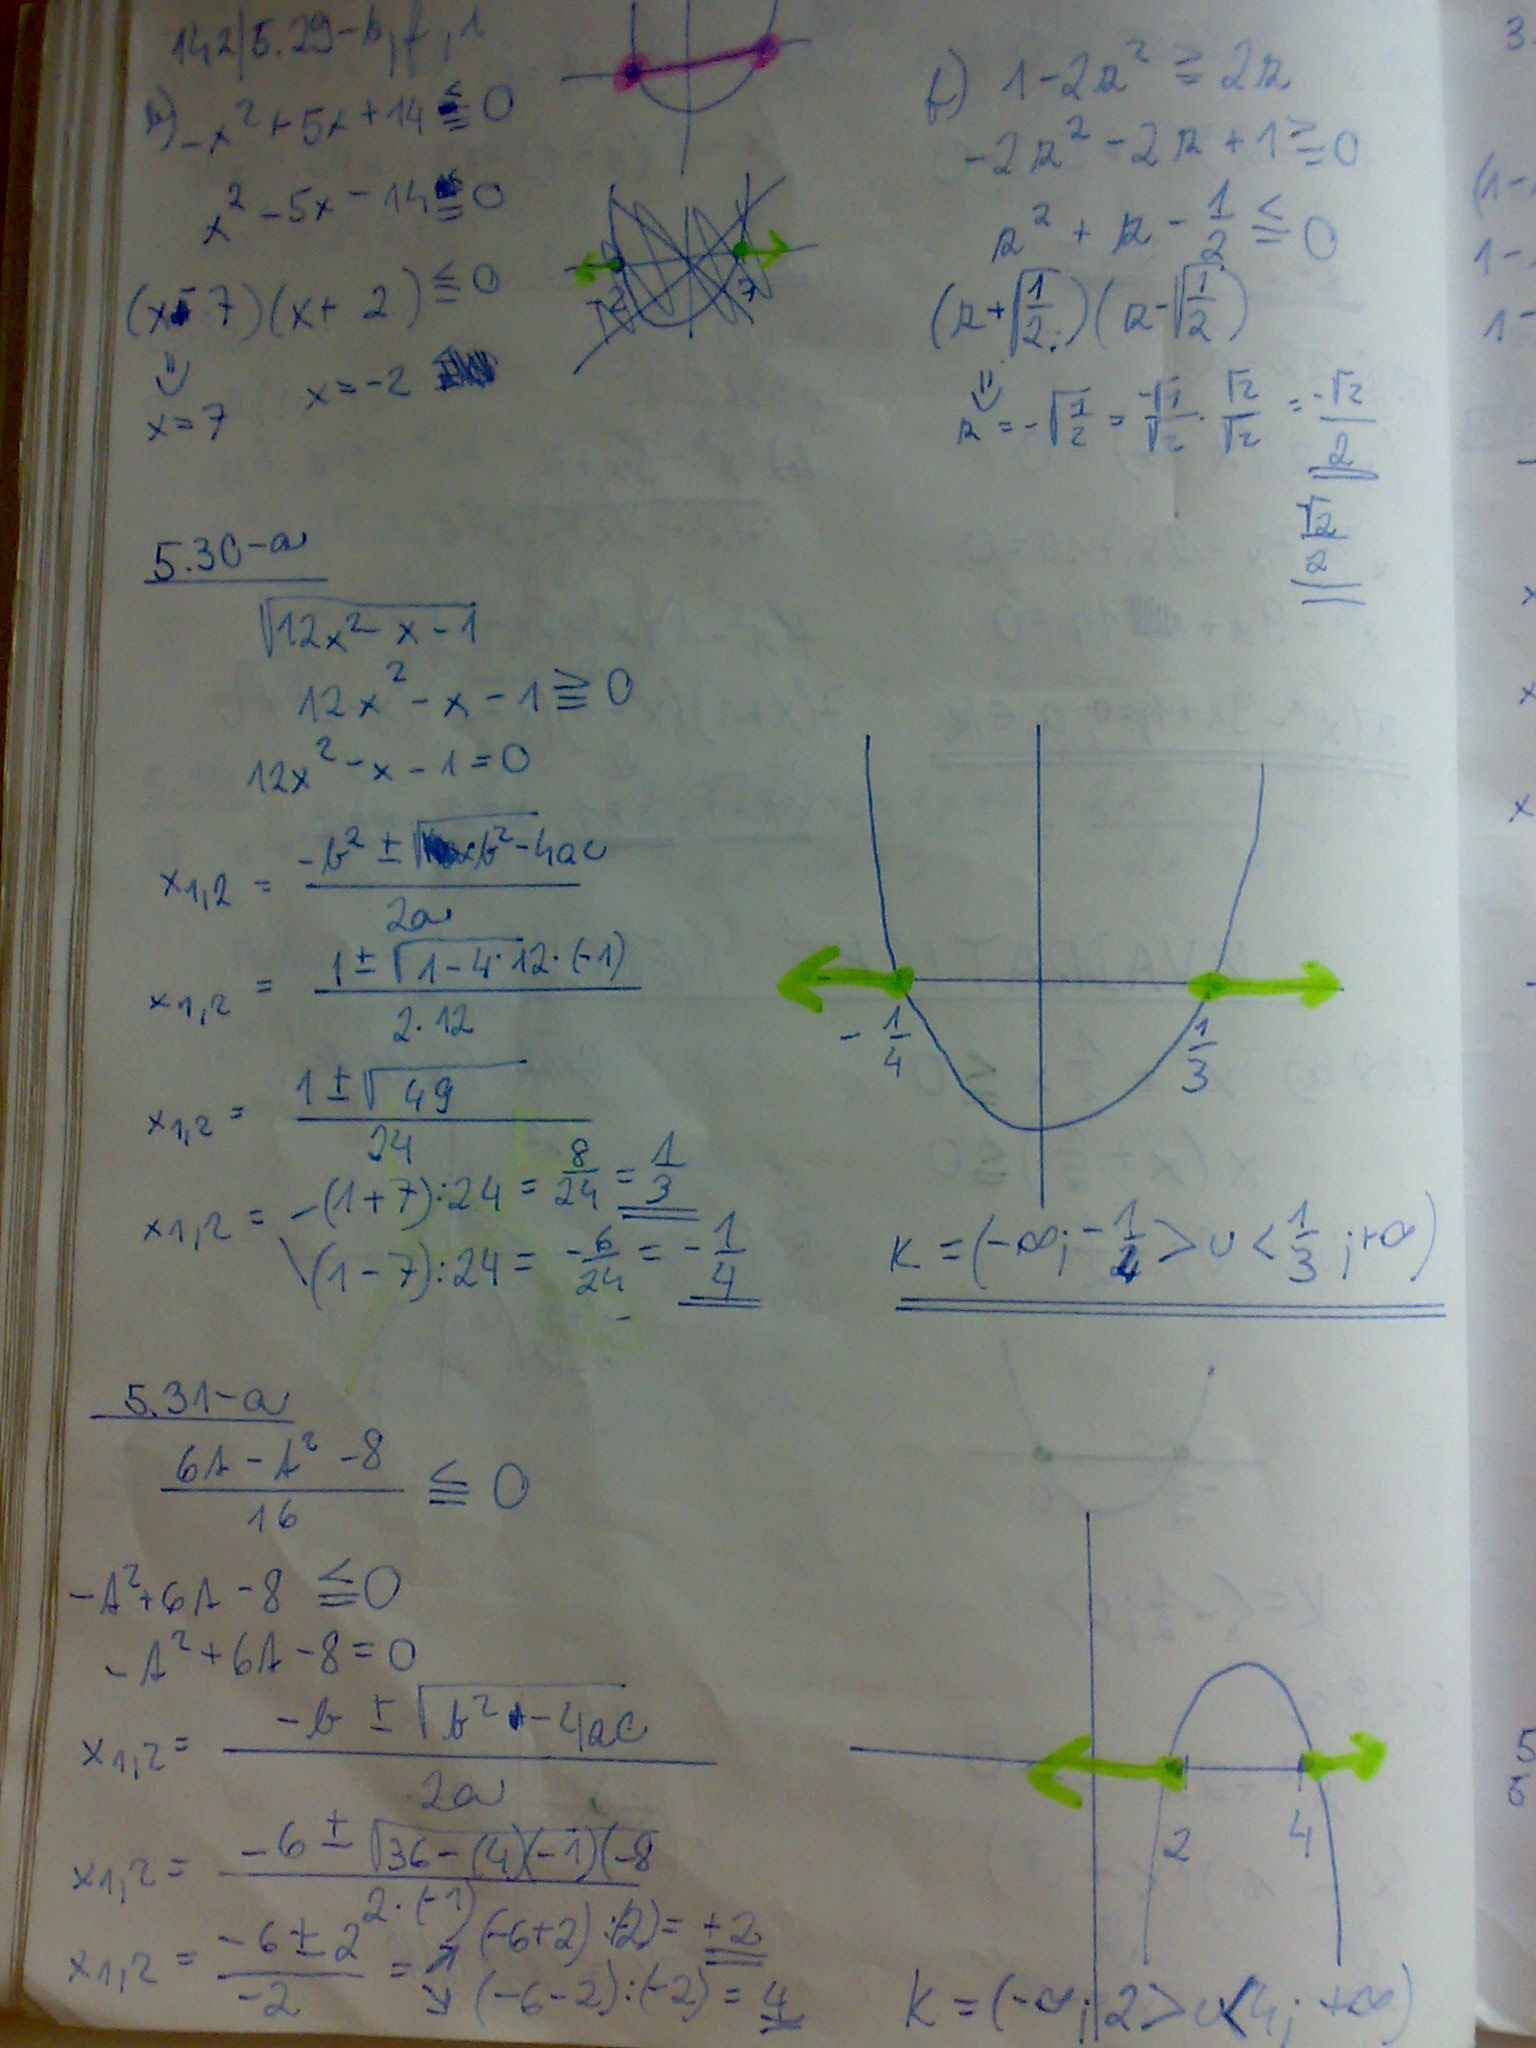 142/5.29-b,f,i
b) -x² + 5x + 14 ≦ 0
x² - 5x - 14 ≦ 0
(x - 7)(x + 2) ≦ 0
x = 7 x = -2
-2 7
f) 1 - 2r² ≧ 2r
-2r² - 2r + 1 ≧ 0
r² + r - 1/2 ≦ 0
(r + √1/2)(r - √1/2)
r = -√1/2 = -√1/√2 · √2/√2 = -√2/2
√2/2
5.30-a
√12x² - x - 1
12x² - x - 1 ≧ 0
12x² - x - 1 = 0
x1,2 = -b² ± √b² - 4ac / 2a
x1,2 = 1 ± √1 - 4·12·(-1) / 2·12
x1,2 = 1 ± √49 / 24
x1,2 = (1 + 7):24 = 8/24 = 1/3
(1 - 7):24 = -6/24 = -1/4
-1/4 1/3
K = (-∞; -1/4> ∪ <1/3; +∞)
5.31-a
6A - A² - 8 / 16 ≦ 0
-A² + 6A - 8 ≦ 0
-A² + 6A - 8 = 0
x1,2 = -b ± √b² - 4ac / 2a
x1,2 = -6 ± √36 - (4)(-1)(-8 / 2·(-1)
x1,2 = -6 ± 2 / -2 = (-6+2):(-2) = +2
(-6-2):(-2) = 4
2 4
K = (-∞; 2> ∪ <4; +∞)